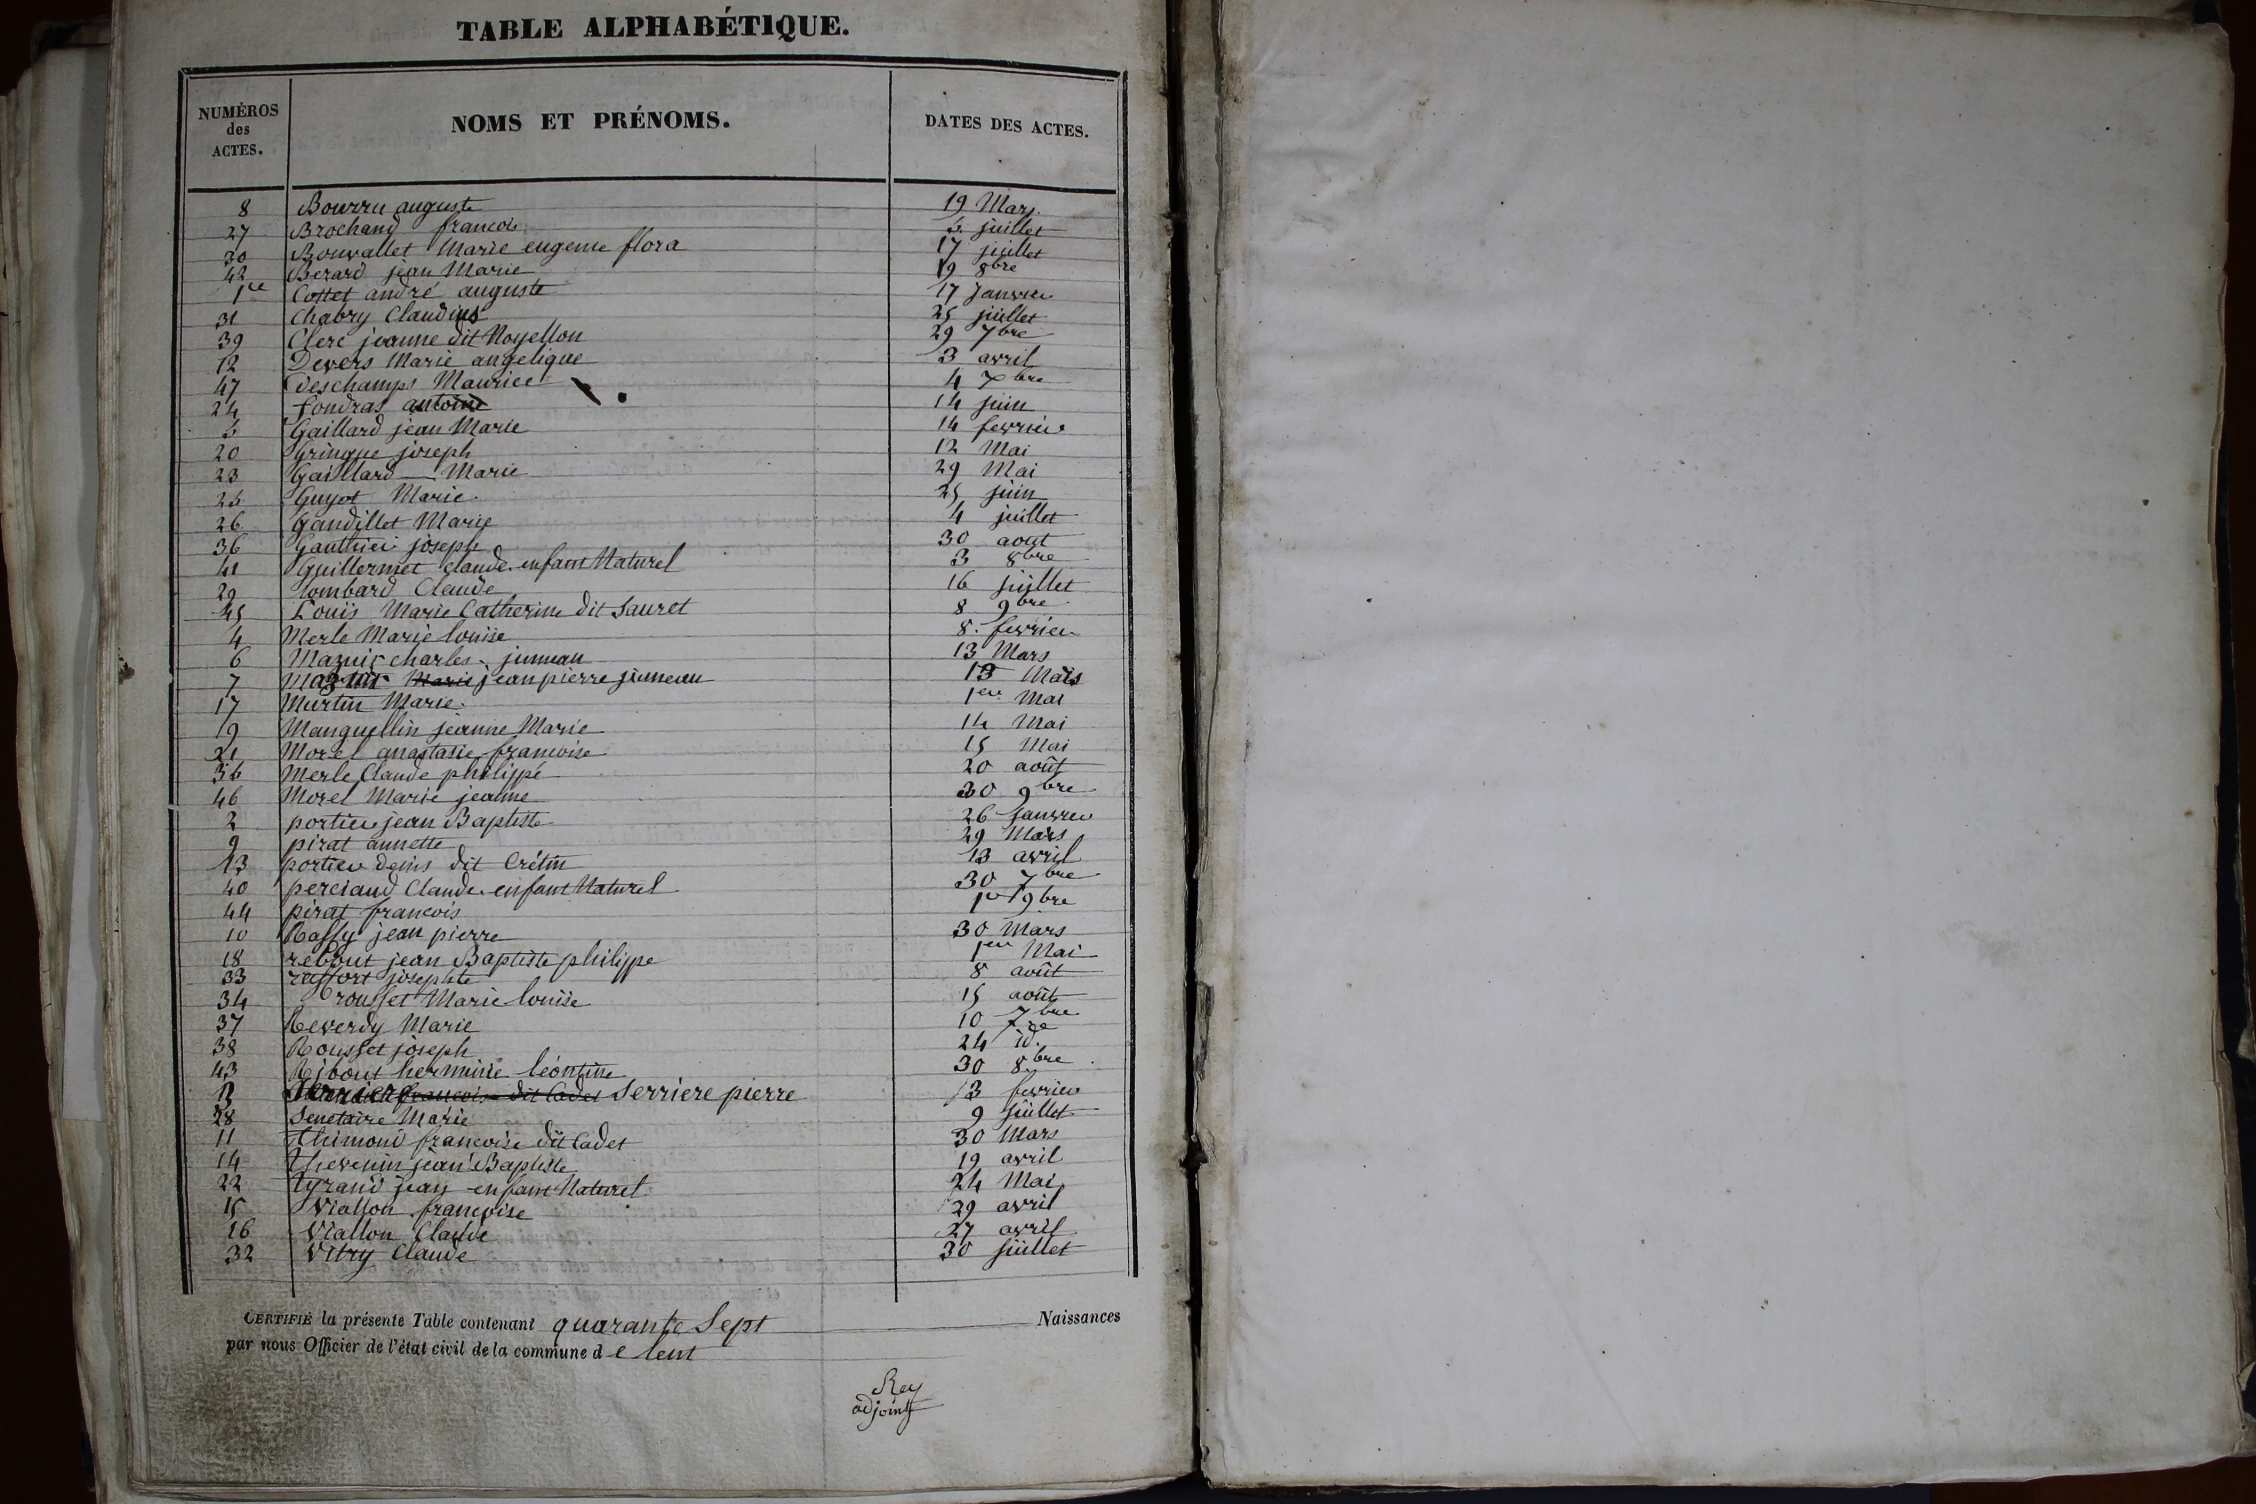 TABLE ALPHABÉTIQUE.
NUMÉROS des ACTES. NOMS ET PRÉNOMS. DATES DES ACTES.
8 Bourru auguste 19 Mars
27 Brochand francois 5 juillet
30 Bouvallet Marie eugenie flora 17 juillet
42 Berard jean Marie 19 8bre
1re Cottet andré auguste 17 Janvier
31 Chabry Claudius 25 juillet
39 Clerc jeanne dit Noyellon 29 7bre
12 Devers Marie angelique 3 avril
47 Deschamps Maurice 4 Xbre
24 fondras antoine 14 juin
5 Gaillard jean Marie 14 fevrier
20 Gringue joseph 12 Mai
23 Gaillard Marie 29 Mai
25 Guyot Marie 25 juin
26 Gandillet Marie 4 juillet
36 Gauthier joseph 30 aout
41 Guillermet claude enfant Naturel 3 8bre
29 lombard Claude 16 juillet
45 Louis Marie Catherine dit Sauret 8 9bre
4 Merle Marie louise 8 fevrier
6 Mazuir charles jumeau 13 Mars
7 Mazuir Marie jean pierre jumeau 13 Mars
17 Martin Marie 1er Mai
19 Manguellin jeanne Marie 14 Mai
21 Morel anastasie francoise 15 Mai
36 Merle Claude philippe 20 août
46 Morel Marie jeanne 30 9bre
2 portier jean Baptiste 26 Janvier
9 pirat annette 29 Mars
13 portier denis dit Crétin 13 avril
40 perciaud Claude enfant Naturel 30 7bre
44 pirat francois 1er 9bre
10 Raffy jean pierre 30 Mars
18 rebout jean Baptiste philippe 1er Mai
33 raffort josephte 8 août
34 rousset Marie louise 15 août
37 Reverdy Marie 10 7bre
38 Rousset joseph 24 id.
43 Ribout herminie léontine 30 8bre
3 francois dit Cadet Serriere pierre 3 fevrier
28 Senetaire Marie 9 juillet
11 Thimond francoise dit Cadet 30 Mars
14 Thevenin jean Baptiste 19 avril
22 tyrand jean enfant Naturel 24 Mai
15 Viallon francoise 29 avril
16 Viallon Claude 27 avril
32 Vitry Claude 30 juillet
CERTIFIÉ la présente Table contenant quarante Sept Naissances
par nous Officier de l'état civil de la commune de lent
Rey
adjoint